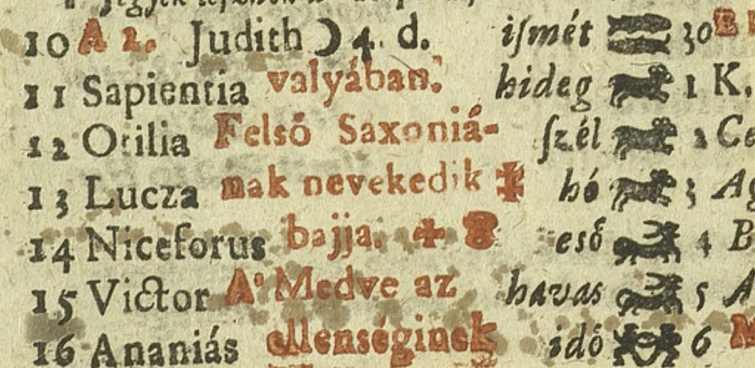 10 A 2. Judith ☽ 4. d. ismét 30
11 Sapientia valyában. hideg 1 K.
12 Otilia Felső Saxoniá- ſzél 2 Ce
13 Lucza nak nevekedik hó 3 A
14 Niceforus bajja. eső 4 B
15 Victor A' Medve az havas 5 A
16 Ananiás ellenséginek idő 6